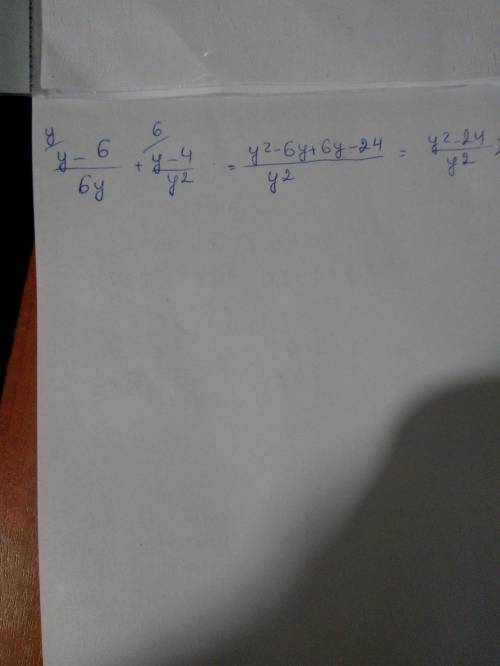 y/ 6/
(y - 6)/(6y) + (y - 4)/(y2) = (y2 - 6y + 6y - 24)/(y2) = (y2 - 24)/(y2)